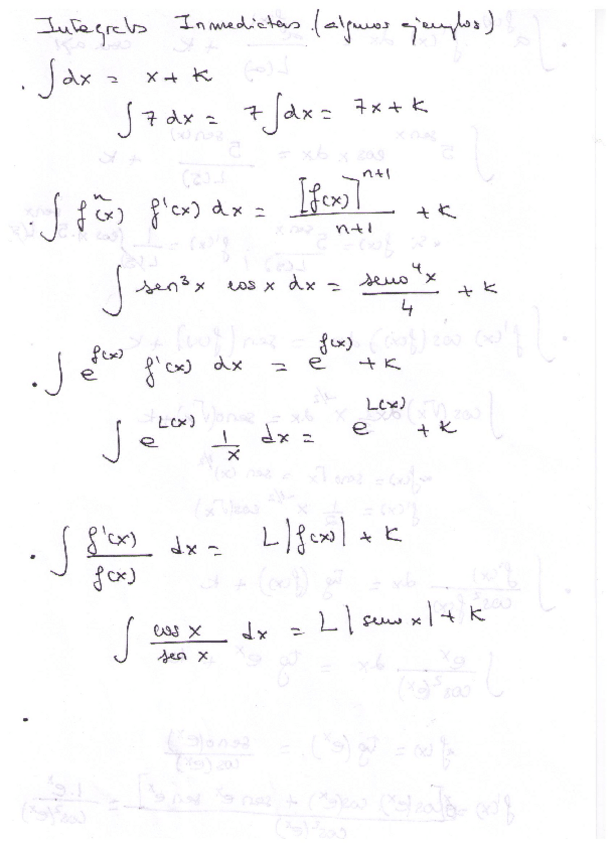 Integrales Inmediatas (algunos ejemplos)
. ∫ dx = x + K
∫ 7 dx = 7 ∫ dx = 7x + K
. ∫ fⁿ(x) f'(x) dx = [f(x)]ⁿ⁺¹ / n+1 + K
∫ sen³x cos x dx = seno⁴x / 4 + K
. ∫ e^f(x) f'(x) dx = e^f(x) + K
∫ e^L(x) 1/x dx = e^L(x) + K
. ∫ f'(x)/f(x) dx = L|f(x)| + K
∫ cos x / sen x dx = L|seno x| + K
.